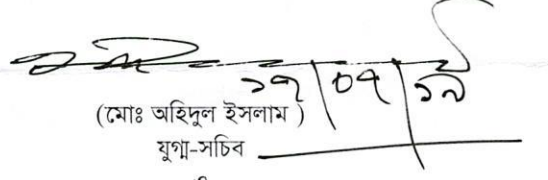 ১৭/০৭/১৯
(মোঃ অহিদুল ইসলাম )
যুগ্ম-সচিব